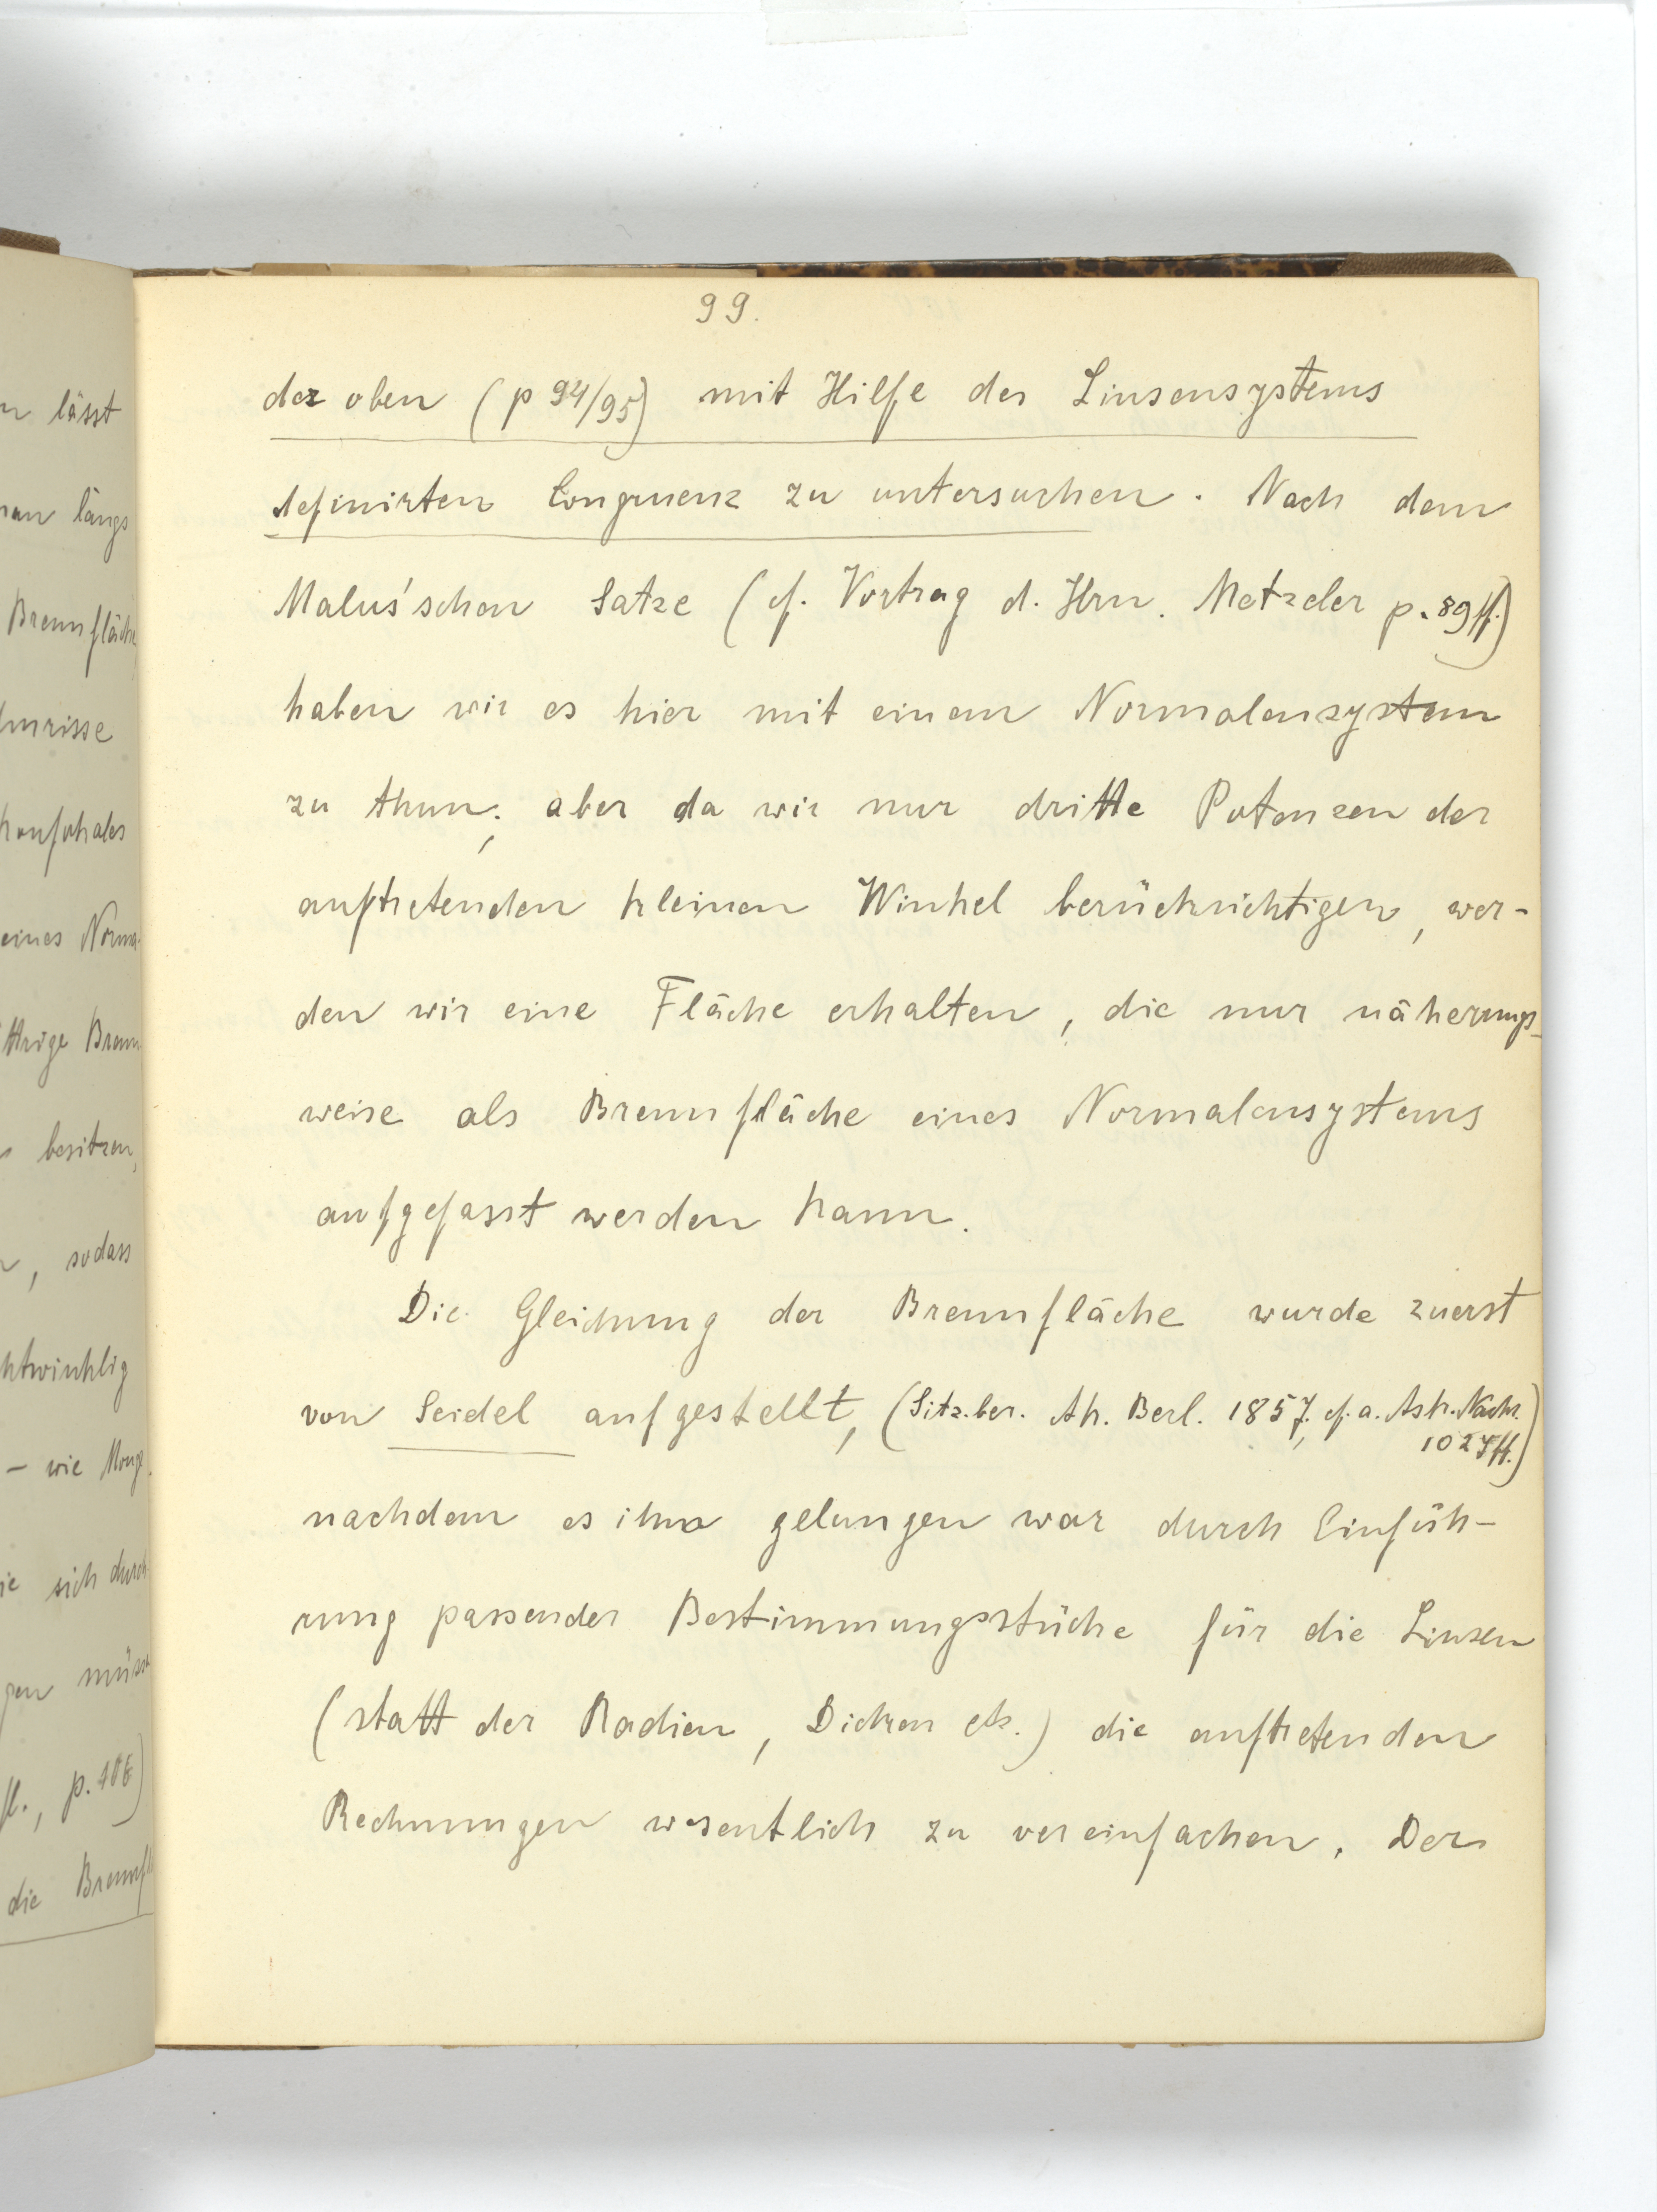 n lässt
man längs
Brennfläche
Umrisse
konfokales
eines Norma-
Brenn
besitzen,
, sodass
htwinklig
– wie Monge
ie sich durch
gen müsse
fl., p. 106)
die Brennfl
99.
der oben (p 94/95) mit Hilfe des Linsensystems
definirten Congruenz zu untersuchen. Nach dem
Malus'schen Satze (cf. Vortrag d. Hrn. Metzeler p. 89 ff.)
haben wir es hier mit einem Normalensystem
zu thun; aber da wir nur dritte Potenzen der
auftretenden kleinen Winkel berücksichtigen, wer-
den wir eine Fläche erhalten, die nur näherungs-
weise als Brennfläche eines Normalensystems
aufgefasst werden kann.
Die Gleichung der Brennfläche wurde zuerst
von Seidel aufgestellt, (Sitz.ber. Ak. Berl. 1857, cf. a. Astr. Nachr.
1027 ff.)
nachdem es ihm gelungen war durch Einfüh-
rung passender Bestimmungsstücke für die Linsen
(statt der Radien, Dicken etc.) die auftretenden
Rechnungen wesentlich zu vereinfachen. Der